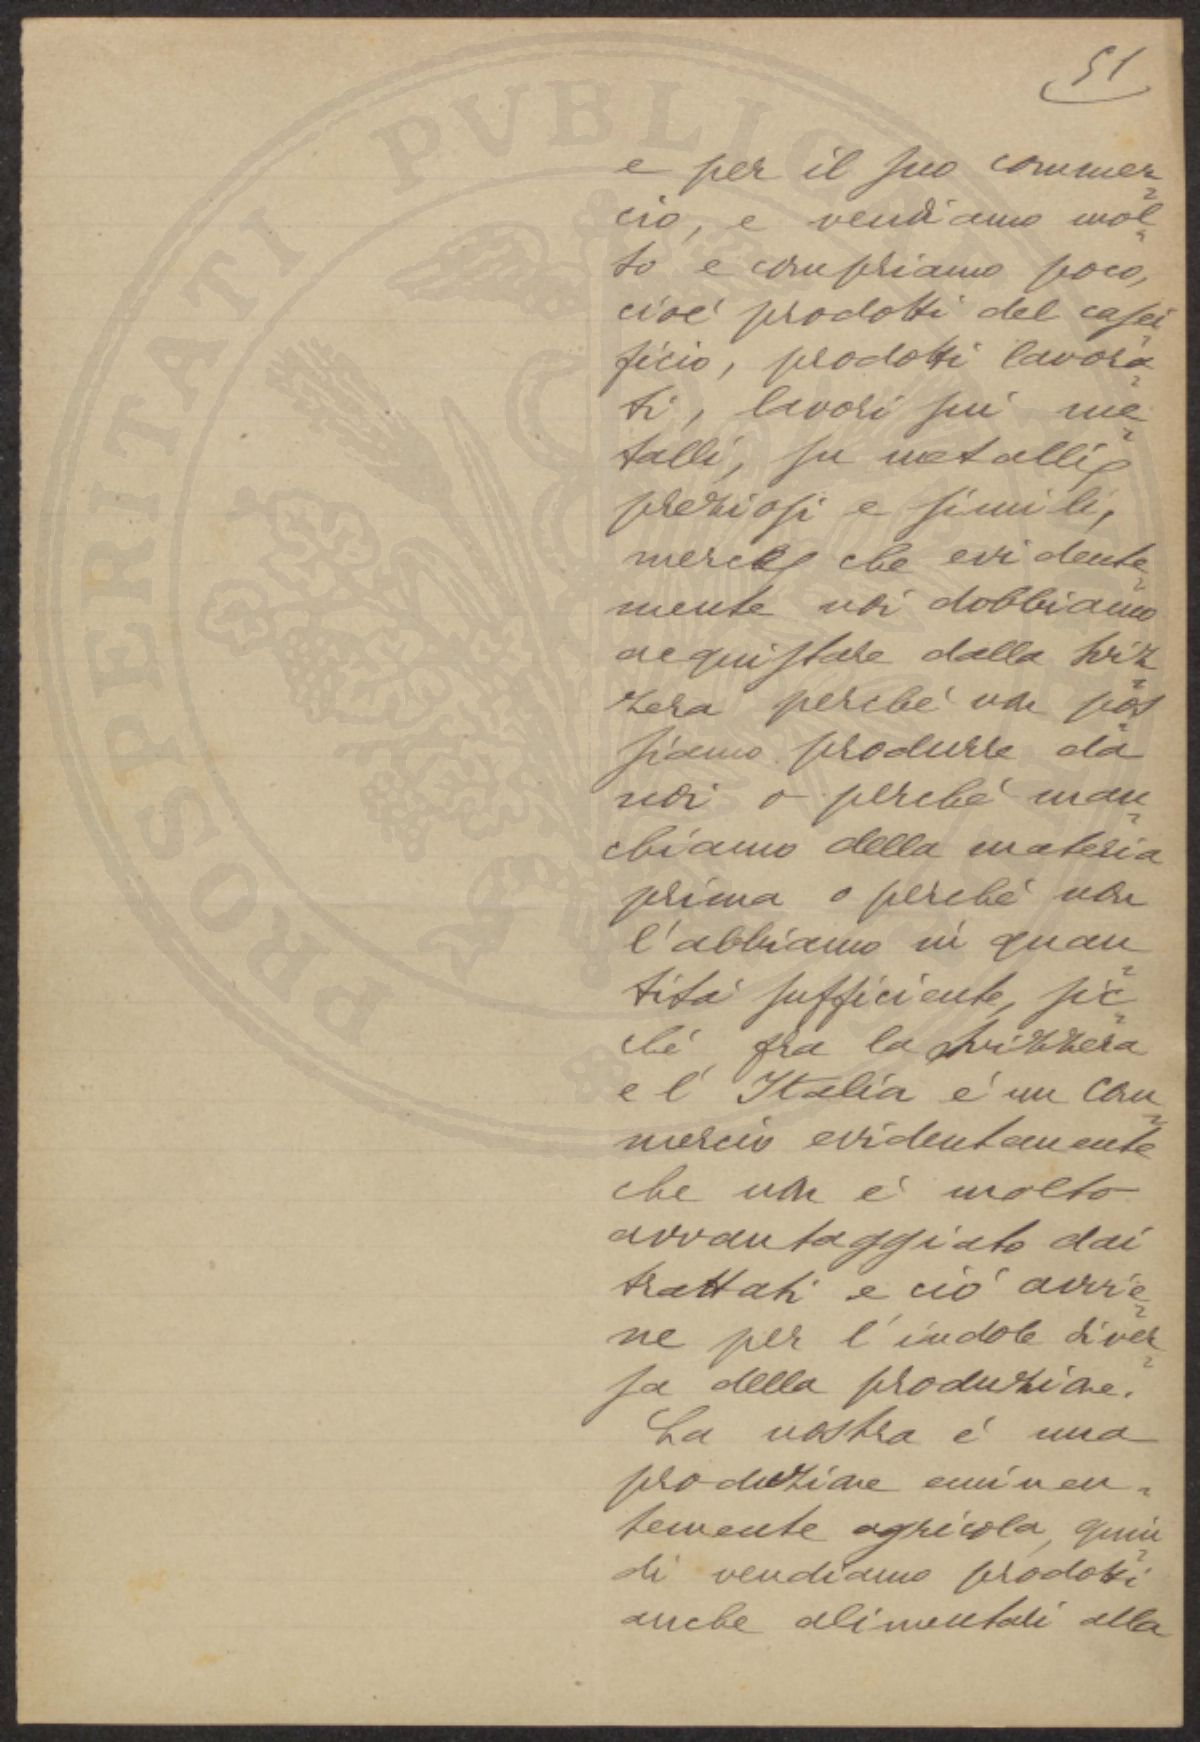 51
e per il suo commer=
cio, e vendiamo mol=
to e compriamo poco,
cioé prodotti del casei=
ficio, prodotti lavora=
ti, lavori sui me=
talli, su metalli
preziosi e simili,
merce che evidente=
mente noi dobbiamo
acquistare dalla Sviz=
zera perché non pos=
siamo produrre da
noi o perché man=
chiamo della materia
prima o perché non
l'abbiamo in quan=
titá sufficiente, sic=
ché fra la Svizzera
e l'Italia é un com=
mercio evidentemente
che non é molto
avvantaggiato dai
trattati e ció avvie=
ne per l'indole diver=
sa della produzione.
La nostra é una
produzione eminen=
temente agricola, quin=
di vendiamo prodotti
anche alimentari alla
PROSPERITATI PVBLICAE